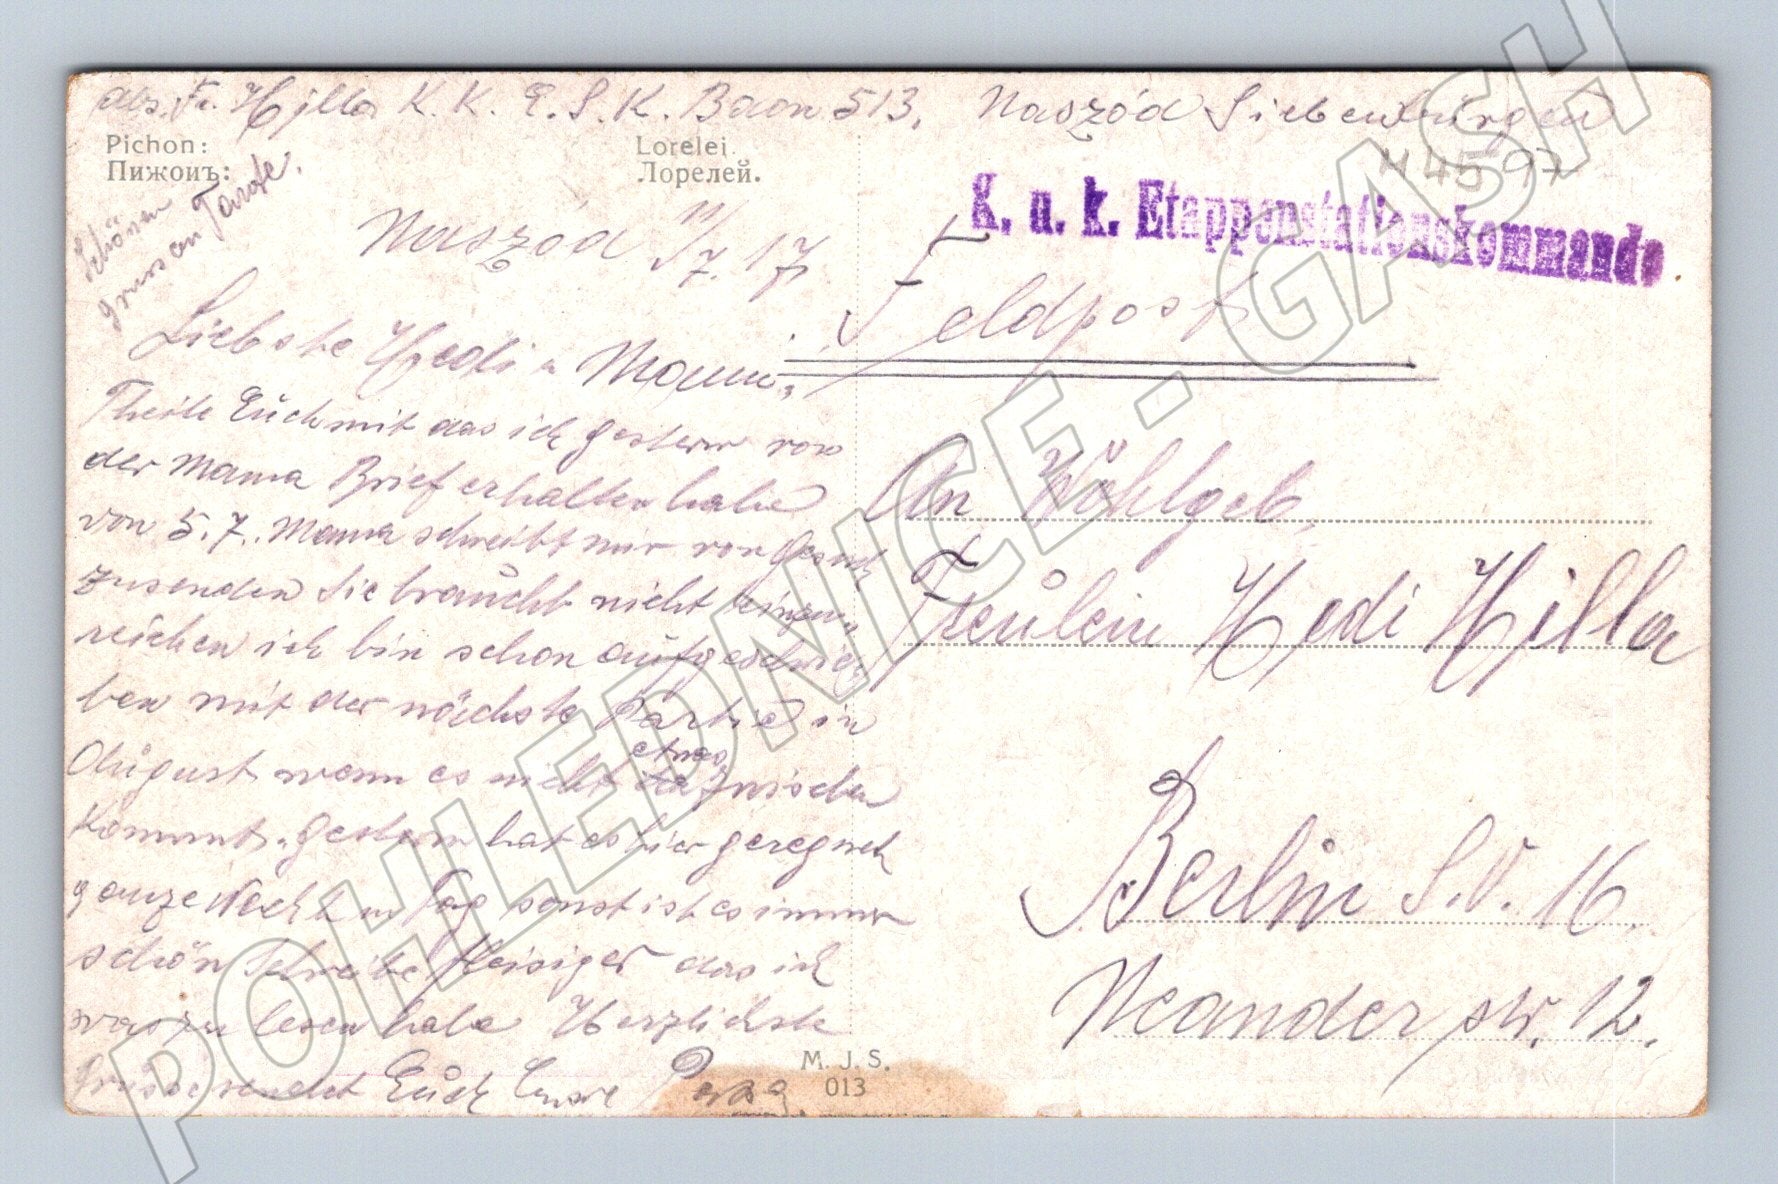 abs. Fr. Hjlla K. K. E. S. K. Baon 513, Naszód Siebenbürgen
Pichon:
Пижонъ:
Lorelei.
Лорелей.
Schönen
gruss an Tante.
M 4597
K. u. k. Etappenstationskommando
Naszód 11/7. 17
Feldpost
Liebste Hedi u Mami,
Theile Euch mit das ich gestern von
der Mama Brief erhalten habe
von 5.7. Mama schreibt mir von Gesuch
zusenden Sie braucht nicht einzu„
reichen ich bin schon aufgeschrie„
ben mit der nächste Partie in
August wenn es nicht etwas zwischen
kommt. Gestern hat es hier geregnet
ganze Nacht u Tag sonst ist es immer
schön Schreibe fleisiger das ich
was zu lesen habe Herzlichste
Grüsse sendet Euch Euere
An Wohlgeb.
Freulein Hedi Hjlla
Berlin S.O. 16
Neander str. 12.
M. J. S.
013
POHLEDNICE - GASH